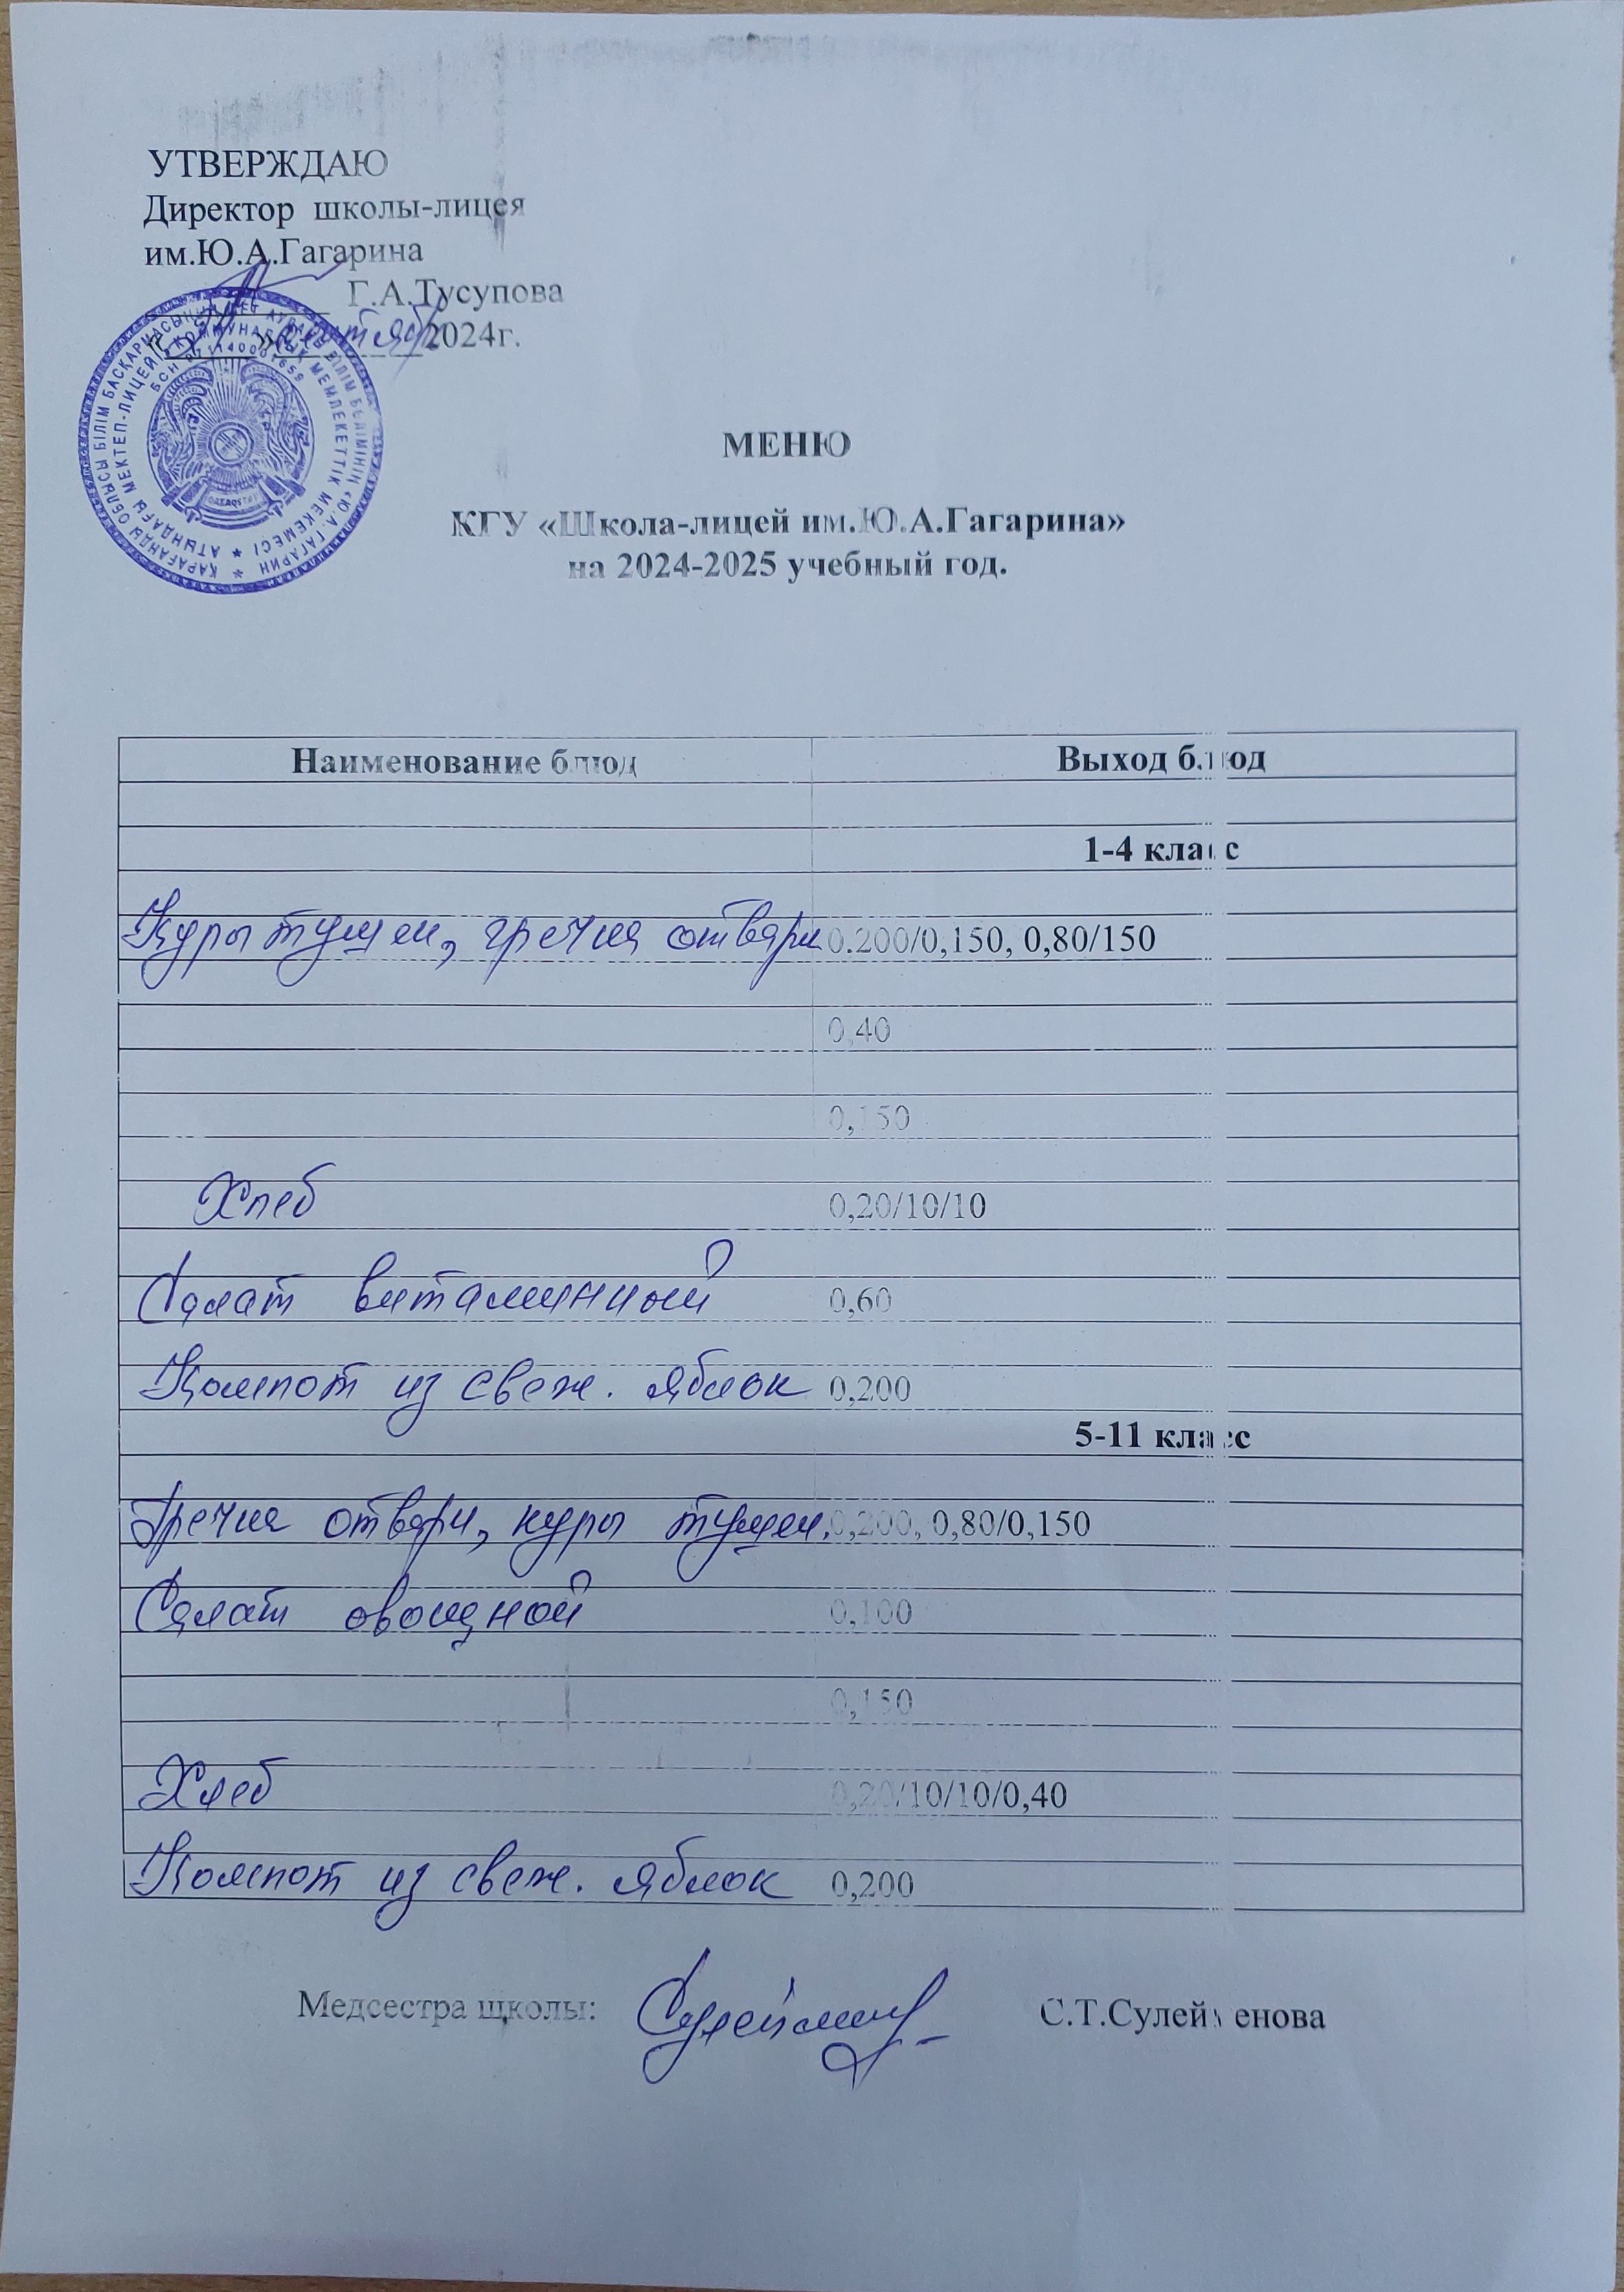 УТВЕРЖДАЮ
Директор школы-лицея
им.Ю.А.Гагарина
Г.А.Тусупова
« » 2024г.
БСН
МЕНЮ
КГУ «Школа-лицей им.Ю.А.Гагарина»
на 2024-2025 учебный год.
Наименование блюд Выход блюд
1-4 класс
Куры тушен, гречка отварн 0.200/0,150, 0,80/150
0,40
0,150
Хлеб 0,20/10/10
Салат витаминный 0,60
Компот из свеж. яблок 0,200
5-11 класс
Гречка отварн, куры тушен. 0,200, 0,80/0,150
Салат овощной 0,100
0,150
Хлеб 0,20/10/10/0,40
Компот из свеж. яблок 0,200
Медсестра школы: С.Т.Сулейменова